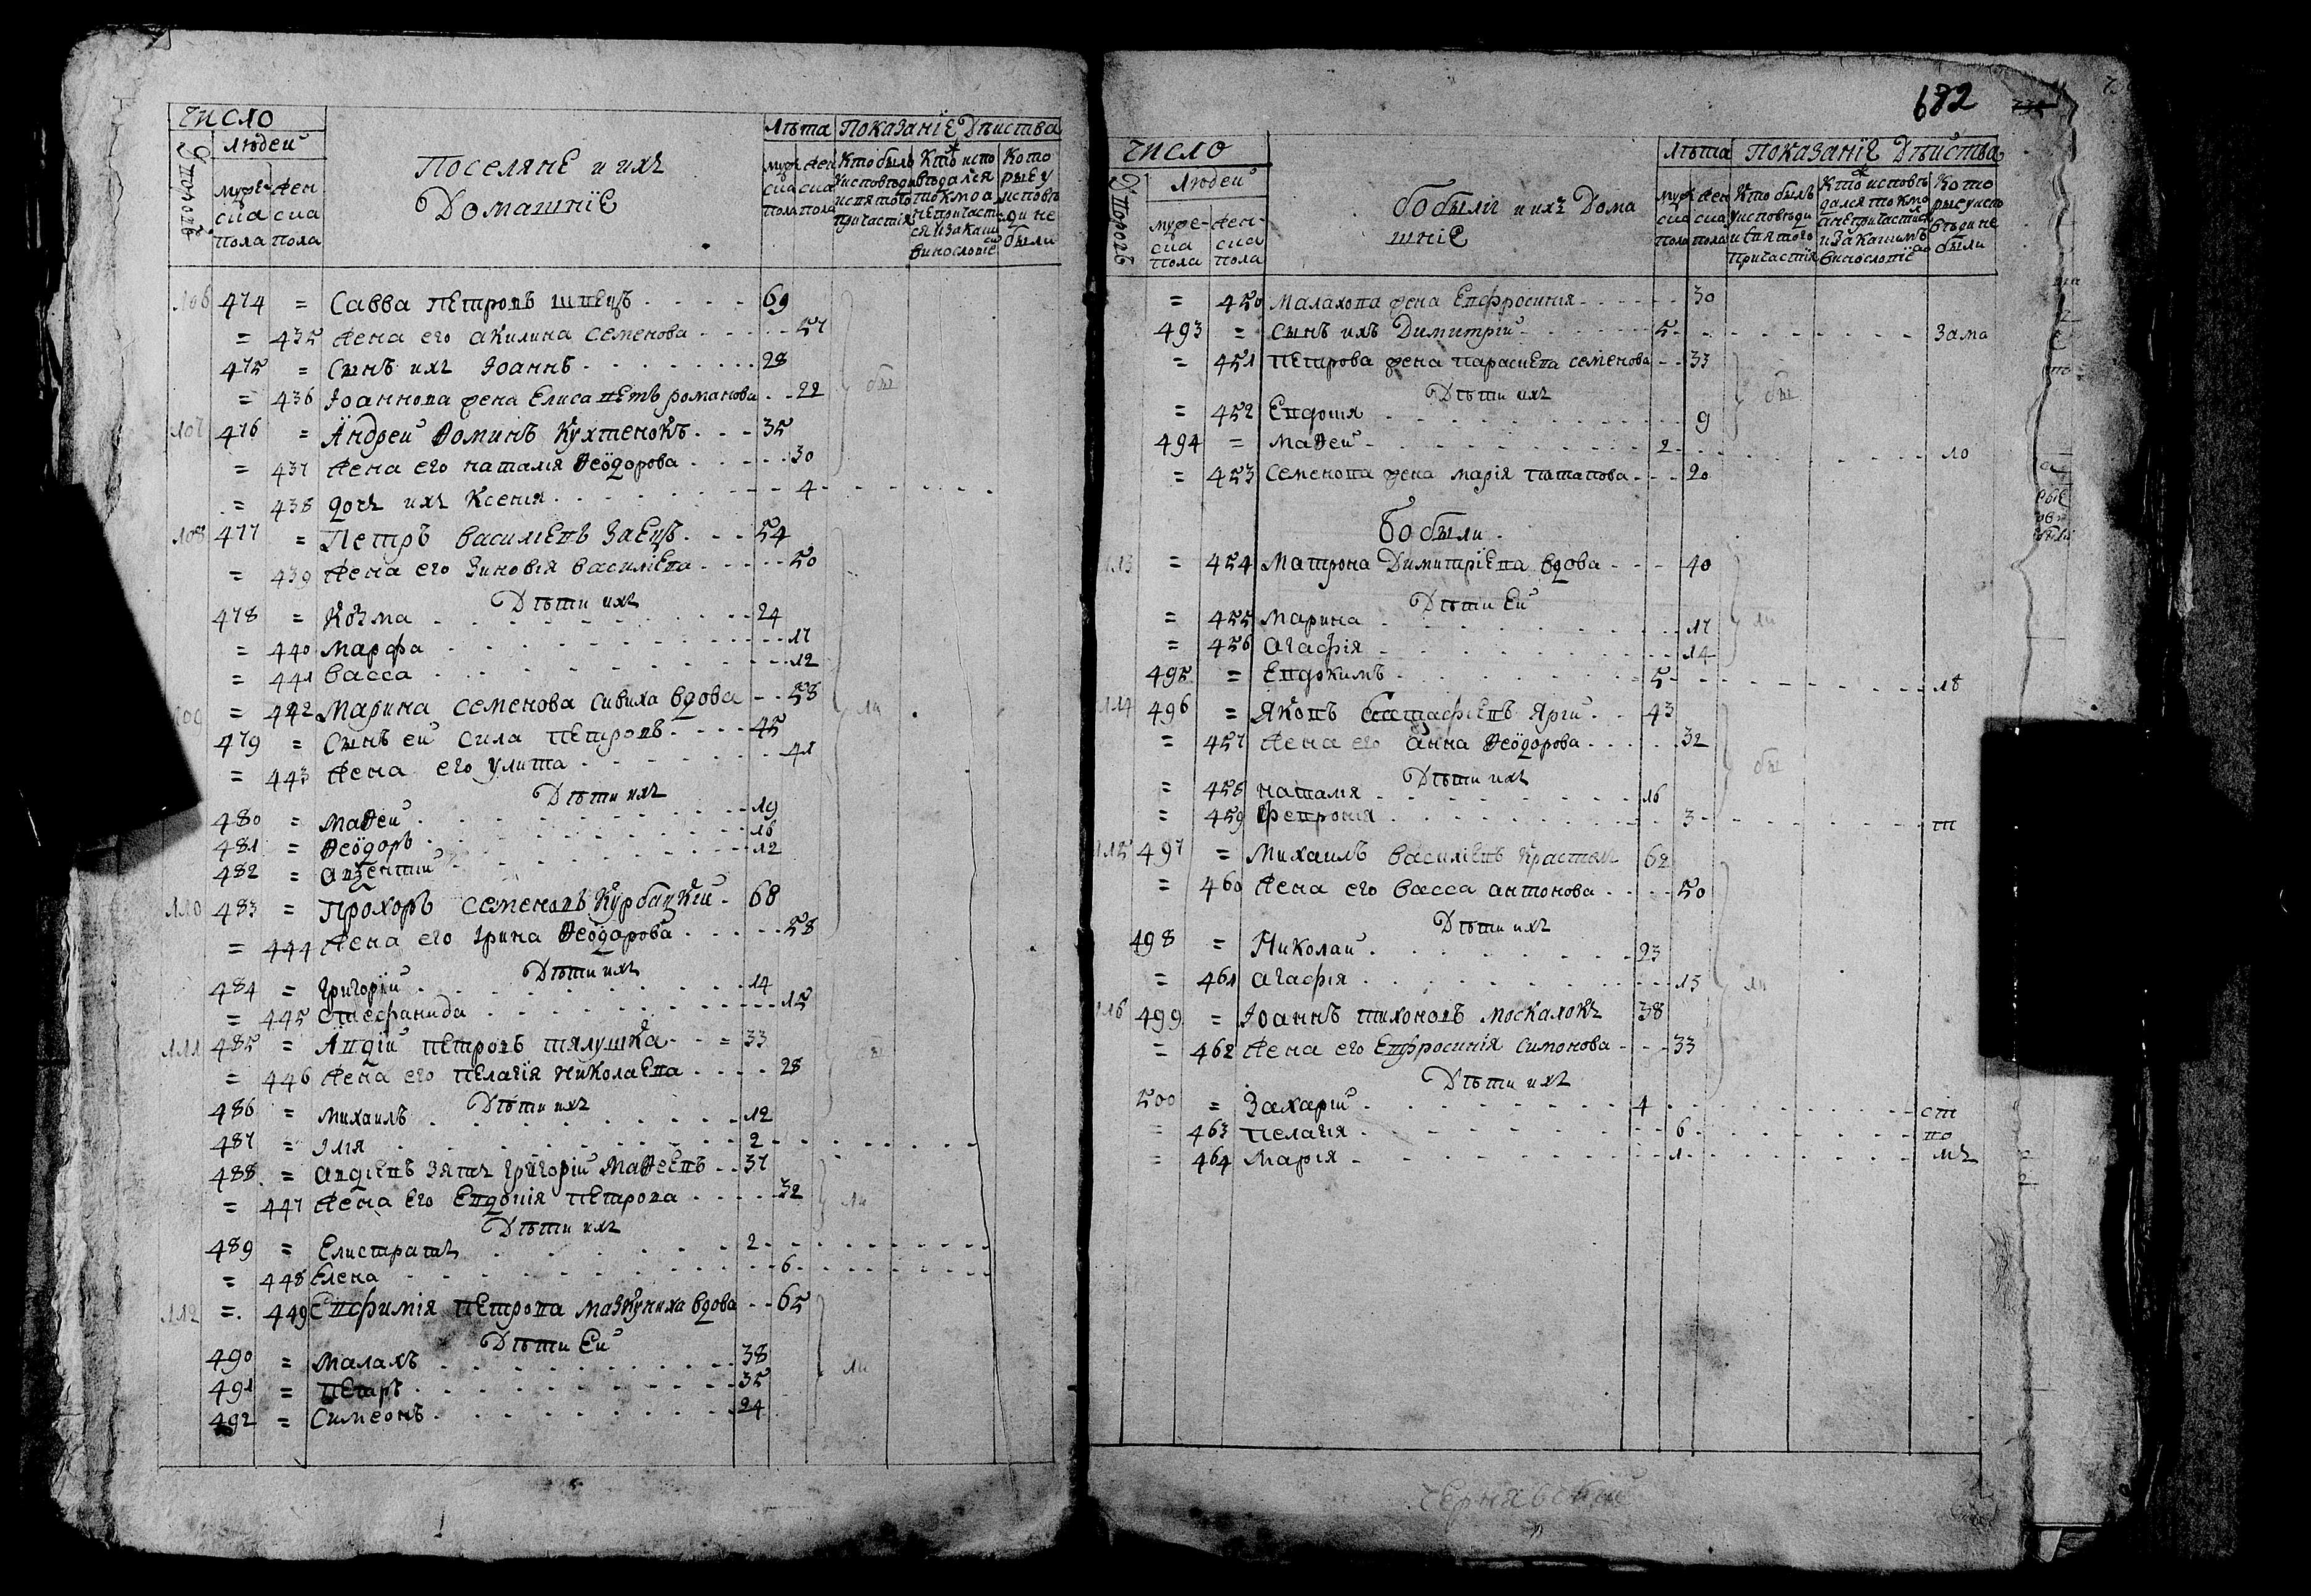 число
людей
Лѣта Показаніе Дѣиства
Дворовъ
мужеска пола
женска пола
Поселяне и ихъ
Домашніе
мужеска пола
женска пола
Кто былъ у исповѣди и святого причастія
Кто исповѣдался токмо а не причастился и за каким винословіе
Которые у исповѣди не были
106 474 = Савва Петровъ швецъ 69
= 435 жена его акилина семенова 57
475 = Сынъ ихъ Іоаннъ 28
= 436 Іоаннова жена Елисаветъ романова 22
бы
107 476 = Андреи Ѳоминъ Кухтенокъ 35
= 437 жена его наталія Ѳеодорова 30
= 438 дочь ихъ Ксенія 4
108 477 = Петръ василіевъ Заецъ 54
= 439 жена его Зиновія василіева 50
Дѣти ихъ
478 = Козма 24
= 440 Марфа 17
= 441 васса 12
109 = 442 Марина семенова сивиха вдова 58
ли
479 = Сынъ еи сила Петровъ 45
= 443 жена его улита 41
Дѣти ихъ
480 = Маѳеи 19
481 = Ѳеодоръ 16
482 = авѯентии 12
110 483 = Прохоръ семеновъ Курбацкіи 68
= 444 жена его Ірина Ѳеодорова 58
Дѣти ихъ
484 = Григоріи 14
= 445 стефанида 15
111 485 = Авдіи Петровъ тялушка 33
бы
= 446 жена его пелагія николаева 28
Дѣти ихъ
486 = михаилъ 12
487 = Ілія 2
488 = авдіевъ зять григоріи Маѳеевъ 37
= 447 жена его Евдокія петрова 32
ли
Дѣти ихъ
489 = Елистратъ 2
= 448 Елена 6
112 = 449 Евфимія петрова мазкуниха вдова 65
Дѣти Еи
490 = Малахъ 38
ли
491 = Петръ 35
492 = Симеонъ 24
682
число
Людеи
Лѣта Показаніе Дѣиства
Дворовъ
мужеска пола
женска пола
бобыли и ихъ Дома
шніе
мужеска пола
женска пола
Кто былъ у исповѣди и святого причастія
Кто исповѣдался токмо а не причастился и за каким винословіе
Которые у исповѣди не были
= 450 Малахова жена Евфросинія 30
493 = сынъ ихъ Димитріи 5 За ма
= 451 петрова жена параскева семенова 33
Дѣти ихъ
бы
= 452 Евдокія 9
494 = Маѳеи 2 ло
= 453 семенова жена марія потапова 20
Бобыли
113 = 454 Матрона Димитріева вдова 40
Дѣти Еи
= 455 Марина 17
ли
= 456 агафія 14
495 = Евдокимъ 5 лѣ
114 496 = Яковъ Евстафіевъ Ярги 43
= 457 жена его анна Ѳеодорова 32
бы
Дѣти ихъ
= 458 наталія 16
= 459 Февронія 3 т
115 497 = Михаилъ василіевъ Крастел 62
= 460 жена его васса антонова 50
Дѣти ихъ
498 = Николаи 23
= 461 агафія 13
ли
116 499 = Іоаннъ тихоновъ москалокъ 38
= 462 жена его Евфросинія симонова 33
Дѣти ихъ
500 = Захаріи 4 ст
= 463 пелагія 6 во
= 464 Марія 1 мъ
чернявскіи